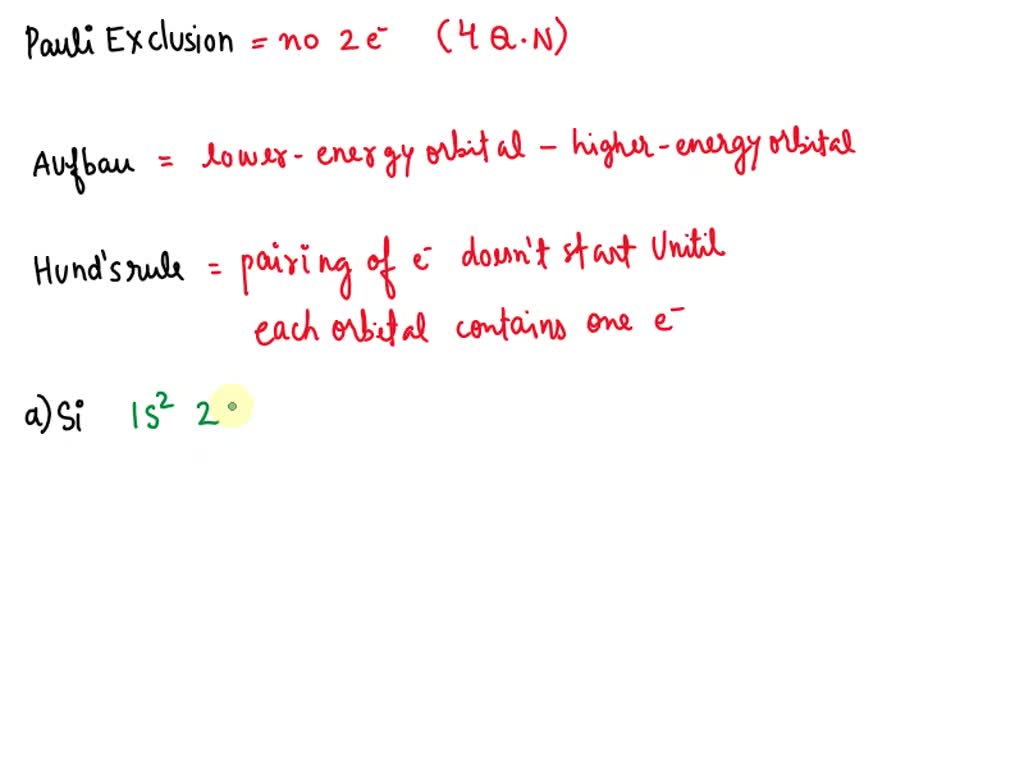 Pauli Exclusion = no 2e⁻ (4 Q.N)
Aufbau = lower-energy orbital - higher-energy orbital
Hund's rule = pairing of e⁻ doesn't start Unitil
each orbital contains one e⁻
a) Si 1s² 2